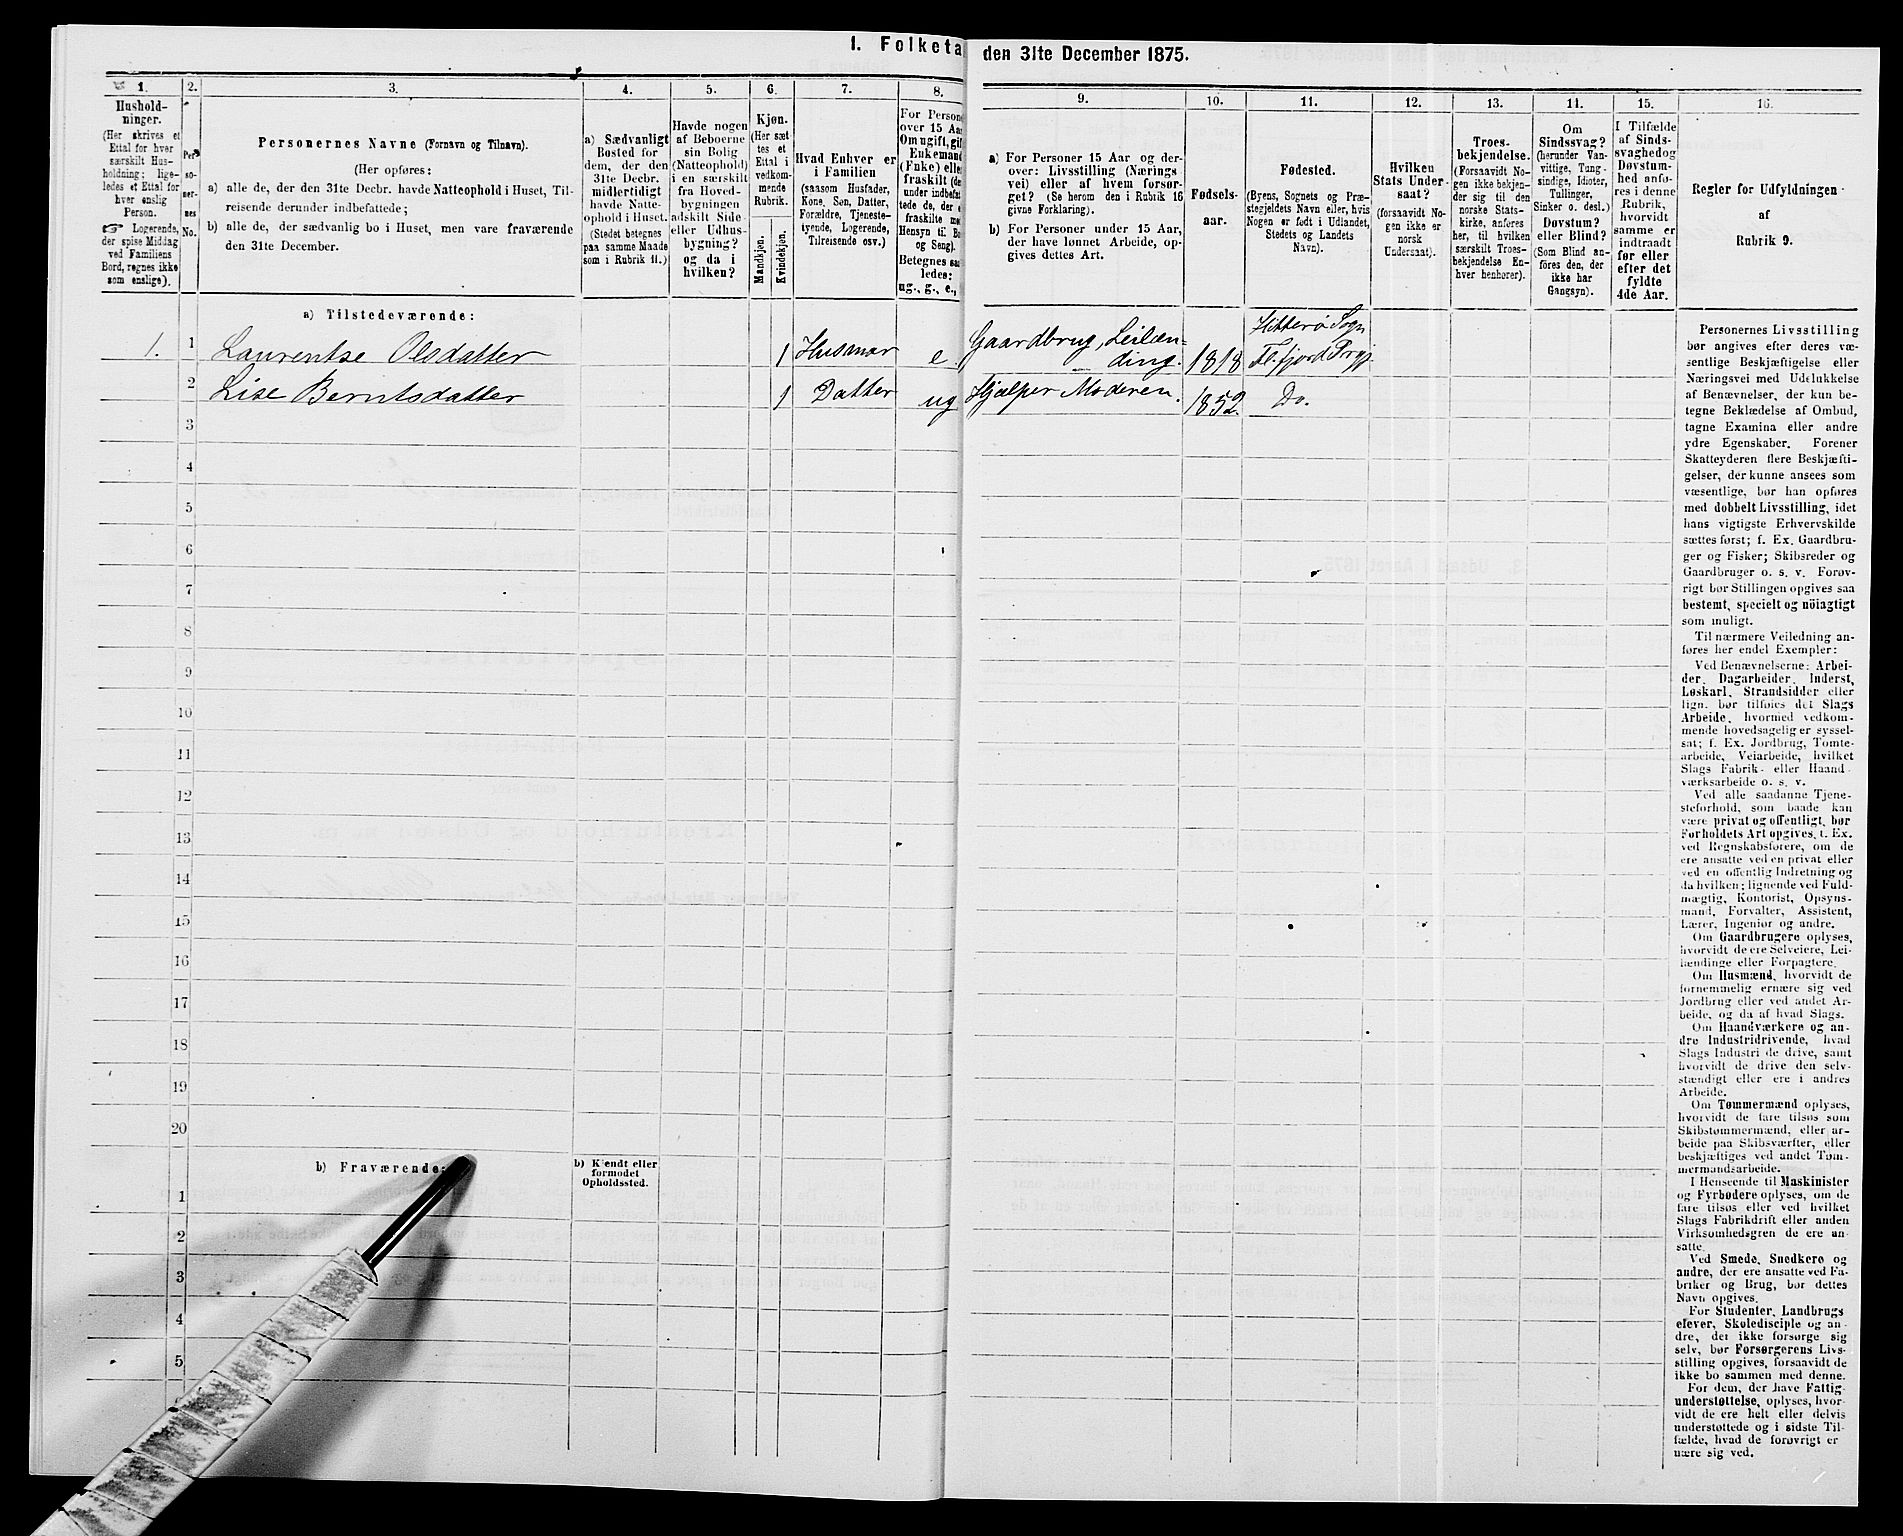 1. Folketa
den 31te December 1875.
1.
Hushold-
ninger.
(Her skrives et
Ettal for hver
særskilt Hus-
holdning; lige-
ledes et Ettal for
hver enslig
Person.
☞ Logerende,
der spise Middag
ved Familiens
Bord, regnes ikke
som enslige).
2.
Per-
so-
ner-
nes
No.
3.
Personernes Navne (Fornavn og Tilnavn).
(Her opføres:
a) alle de, der den 31te Decbr. havde Natteophold i Huset, Til-
reisende derunder indbefattede;
b) alle de, der sædvanlig bo i Huset, men vare fraværende
den 31te December.
4.
a) Sædvanligt
Bosted for
dem, der den
31te Decbr.
midlertidigt
havde Natte-
ophold i Huset.
(Stedet betegnes
paa samme Maade
som i Rubrik 11.)
5.
Havde nogen
af Beboerne
sin Bolig
(Natteophold)
i en særskilt
fra Hoved-
bygningen
adskilt Side-
eller Udhus-
bygning?
og da i
hvilken?
6.
Kjøn.
(Her sæt-
tes et
Ettal i
vedkom-
mende
Rubrik.
Mandkjøn.
Kvindekjøn.
7.
Hvad Enhver er
i Familien
(saasom Husfader,
Kone, Søn, Datter,
Forældre, Tjeneste-
tyende, Logerende,
Tilreisende osv.)
8.
For Persone
over 15 Aa
Om ugift, gif
Enkemand
(Enke) elle
fraskilt (de
under indbefat
tede de, der e
fraskilte me
Hensyn til Bo
og Seng).
Betegnes saa
ledes:
ug., g., e.,
9.
a) For Personer 15 Aar og der-
over: Livsstilling (Nærings
vei) eller af hvem forsør-
get? (Se herom den i Rubrik 16
givne Forklaring).
b) For Personer under 15 Aar,
der have lønnet Arbeide, op-
gives dettes Art.
10.
Fødsels-
aar.
11.
Fødested.
(Byens, Sognets og Præ-
stegjeldets Navn eller, hvis
Nogen er født i Udlandet,
Stedets og Landets
Navn).
12.
Hvilken
Stats Under-
saat?
(forsaavidt No-
gen ikke er
norsk
Undersaat).
13.
Troes-
bekjendelse.
(Forsaavidt No-
gen ikke bekjen-
der sig til den
norske Stats-
kirke, anføres
her, til hvilken
særskilt Troes-
bekjendelse En-
hver henhører).
11.
Om
Sindssvag?
(herunder Van-
vittige, Tung-
sindige, Idioter,
Tullinger,
Sinker o. desl.)
Døvstum?
eller Blind?
(Som Blind an-
føres den, der
ikke har
Gangsyn).
15.
I Tilfælde
af Sinds-
svaghed og
Døvstum-
hed anfø-
res i denne
Rubrik,
hvorvidt
samme er
indtraadt
før eller
efter det
fyldte
4de Aar.
16.
Regler for Udfyldningen
af
Rubrik 9.
a) Tilstedeværende:
1. 1 Laurentse Olsdatter 1 Husmor e Gaardbrug, Leilæn-
ding. 1818 Hitterø Sogn
Fl.fjord Prgj.
2 Lise Berntsdatter 1 Datter ug Hjælper Moderen. 1852 Do.
3
4
5
6
7
8
9
10
11
12
13
14
15
16
17
18
19
20
b) Fraværende:
b) Kjendt eller
formodet
Opholdssted.
1
2
3
4
5
Personernes Livsstilling
bør angives efter deres væ-
sentlige Beskjæftigelse eller
Næringsvei med Udelukkelse
af Benævnelser, der kun be-
tegne Beklædelse af Ombud,
tagne Examina eller andre
ydre Egenskaber. Forener
Skatteyderen flere Beskjæfti-
gelser, der kunne ansees som
væsentlige, bør han opføres
med dobbelt Livsstilling, idet
hans vigtigste Erhvervskilde
sættes først; f. Ex. Gaardbru-
ger og Fisker; Skibsreder og
Gaardbruger o. s. v. Forøv-
rigt bør Stillingen opgives saa
bestemt, specielt og nöiagtigt
som muligt.
Til nærmere Veiledning an-
føres her endel Exempler:
Ved Benævnelserne: Arbei-
der, Dagarbeider, Inderst,
Løskarl, Strandsidder eller
lign. bør tilføies det Slags
Arbeide, hvormed vedkom-
mende hovedsagelig er syssel-
sat; f. Ex. Jordbrug, Tomte-
arbeide, Veiarbeide, hvilket
Slags Fabrik- eller Haand-
værksarbeide o. s. v.
Ved alle saadanne Tjene-
steforhold, som baade kan
være privat og offentligt, bør
Forholdets Art opgives, t. Ex.
ved Regnskabsførere, om de
ere ansatte ved en privat eller
ved en offentlig Indretning og
da hvilken; lignende ved Fuld-
mægtig, Kontorist, Opsyns-
mand, Forvalter, Assistent,
Lærer, Ingeniør og andre.
Om Gaardbrugere oplyses,
hvorvidt de ere Selveiere, Lei-
lændinge eller Forpagtere.
Om Husmænd, hvorvidt de
fornemmelig ernære sig ved
Jordbrug eller ved andet Ar-
beide, og da af hvad Slags.
Om Haandværkere og an-
dre Industridrivende, hvad
Slags Industri de drive, samt
hvorvidt de drive den selv-
stændigt eller ere i andres
Arbeide.
Om Tømmermænd oplyses,
hvorvidt de fare tilsøs som
Skibstømmermænd, eller ar-
beide paa Skibsværfter, eller
beskjæftiges ved andet Tøm-
mermandsarbeide.
I Henseende til Maskinister
og Fyrbødere oplyses, om de
fare tilsøs eller ved hvilket
Slags Fabrikdrift eller anden
Virksomhedsgren de ere an-
satte.
Ved Smede, Snedkere og
andre, der ere ansatte ved Fa-
briker og Brug, bør dettes
Navn opgives.
For Studenter, Landbrugs
elever, Skoledisciple og an-
dre, der ikke forsørge sig
selv, bør Forsørgerens Livs-
stilling opgives, forsaavidt de
ikke bo sammen med denne.
For dem, der have Fattig-
understøttelse, oplyses, hvor-
vidt de ere helt eller delvis
understøttede og i sidste Til-
fælde, hvad de forøvrigt er
nære sig ved.